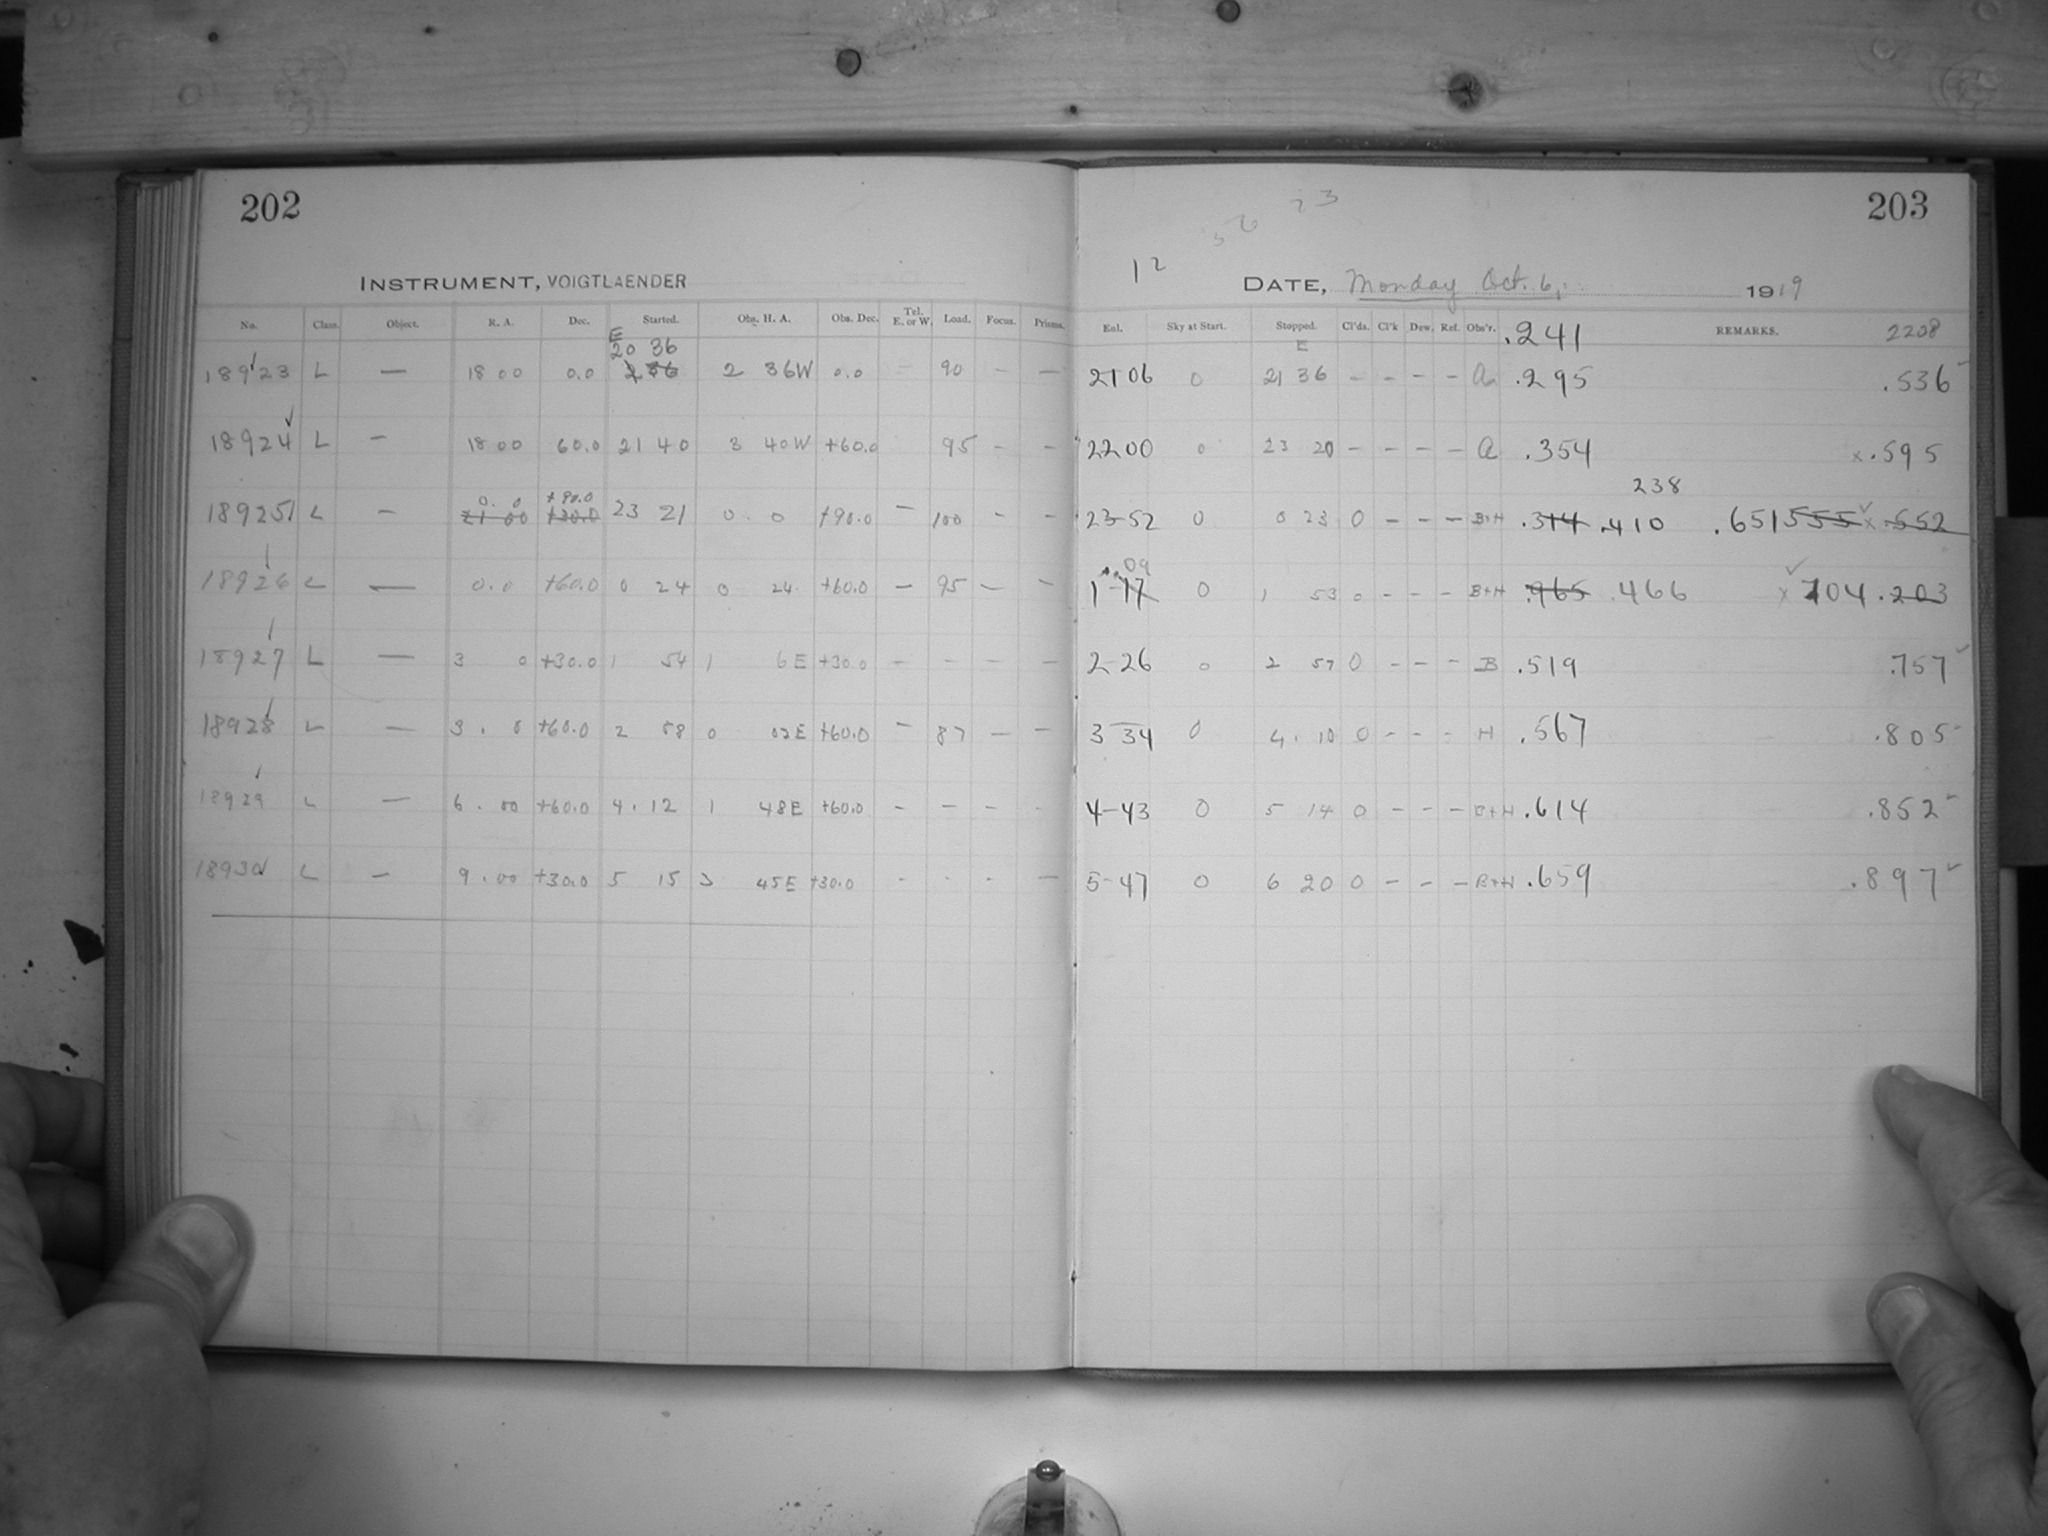 202
INSTRUMENT, VOIGTLAENDER
No. Class. Object. R. A. Dec. Started. Obs. H. A. Obs. Dec. Tel. E. or W. Load. Focus. Prisms.
E
20 36
18923 L — 18 00 0.0 2 36 2 36W 0.0 - 90 - —
18924 L — 18 00 60.0 21 40 3 40W +60.0 95 - -
0. 0 +90.0
18925 L - 21 00 +30.0 23 21 0. 0 +90.0 - 100 - -
18926 L — 0.0 +60.0 0 24 0 24 +60.0 - 95 - -
18927 L — 3 0 +30.0 1 54 1 6E +30.0 - - - -
18928 L — 3. 0 +60.0 2 58 0 02E +60.0 - 87 - -
18929 L — 6. 00 +60.0 4. 12 1 48E +60.0 - - - -
18930 L — 9. 00 +30.0 5 15 3 45E +30.0 - - - —
203
23
36
12
DATE, Monday Oct. 6, 1919
Enl. Sky at Start. Stopped. Cl'ds. Cl'k Dew. Ref. Obs'r. .241 REMARKS. 2208
E
2106 0 21 36 - - - - a .295 .536
2200 0 23 20 - - - - a .354 x .595
238
23-52 0 0 23 0 - - - B+H .314 .410 .651 555 x .552
09
1-17 0 1 53 0 - - - B+H .465 .466 x 704 .203
2-26 0 2 57 0 - - - B .519 .757
3-34 0 4. 10 0 - - - H .567 .805
4-43 0 5 14 0 - - - B+H .614 .852
5-47 0 6 20 0 - - - B+H .659 .897